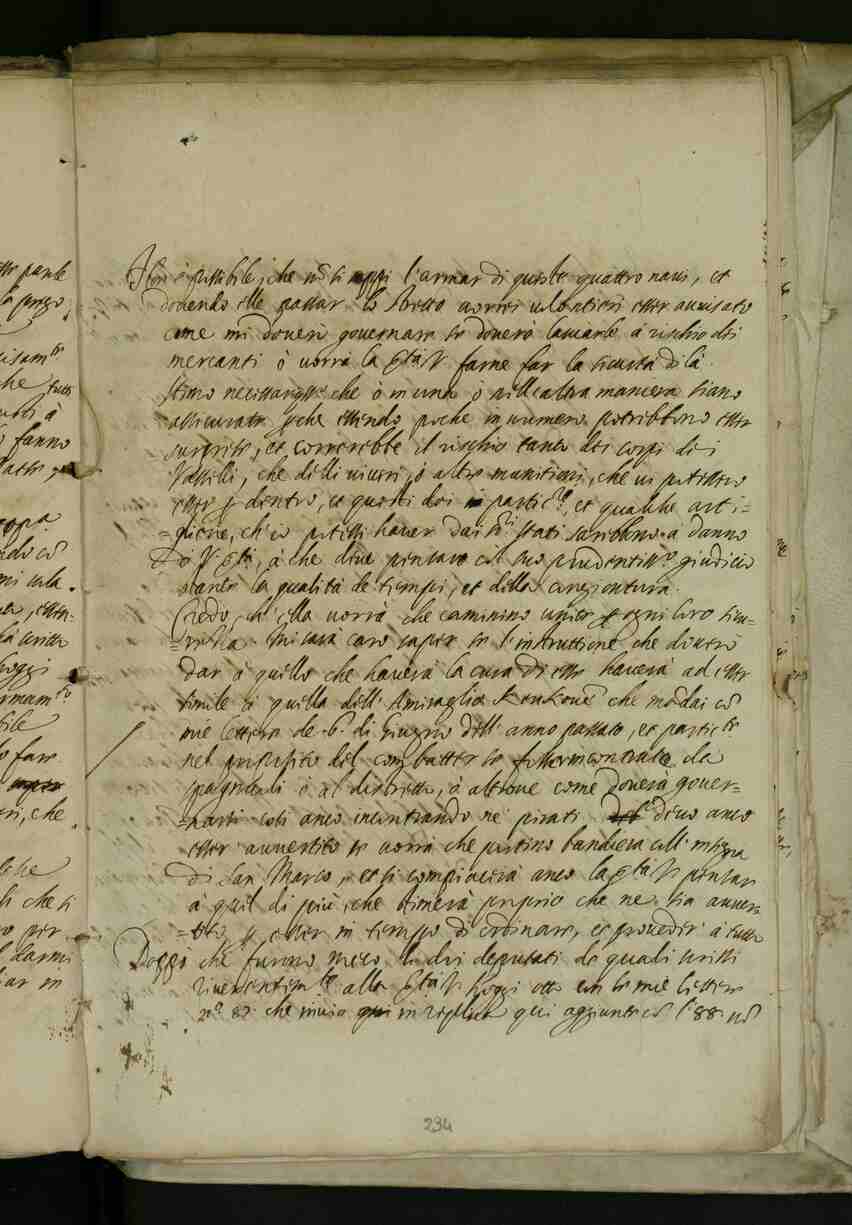 possibile, che nõ si sappi l'armar di queste quattro navi, et
dovendo esse passar lo stretto vorrei volontieri esser avvisato
come mi doverò governare se doverò lasciarle à rischio dei
mercanti ò vorrà la Stà V. farne far la sicurtà di là.
stimo necessariss.o che ò in una ò nell'altra maniera siano
assicurate perche essendo poche in numero potrebbono esser
surprese, et correrebbe il rischio tanto dei corpi dei
Vasselli, che delli viveri, ò altre munitioni, che vi potessero
esser per dentro, et questi doi in partic.re, et qualche arti=
=glierie, ch'io potessi haver dai Sri stati sarebbono à danno
di V. Stà, à che deve pensare col suo prudentiss.o giudicio
stante la qualità de tempi, et della congiontura.
Credo, ch'ella vorrà che caminino unite per ogni loro sicu=
=rezza. Mi sarà caro saper se l'instruttione che doverò
dar à quello che haverà la cura di esse haverà ad esser
simile à quella dell'Amiraglio che mãdai cõ
mie lettere de 6. di Giugno dell'anno passato, et partic.re
nel proposito del combatter se fosser incontrate da
spagnuoli ò al distretto, ò altrove come doverà gover=
=narsi così anco incontrando ne pirati. Devo anco
esser avvertito se vorrà che portino bandiera coll'insegna
di San Marco, et si compiacerà anco la Stà V. pensar
à quel di più, che stimerà proprio che ne sia avver=
=tito per esser in tempo di ordinare, et proveder à tutto
Doppò che furono meco li dei deputati de quali scrissi
riverentem.te alla Stà V. hoggi otto con le mie lettere
n.o 87. che invio in replica qui aggiunte cõ l'88. nõ
234